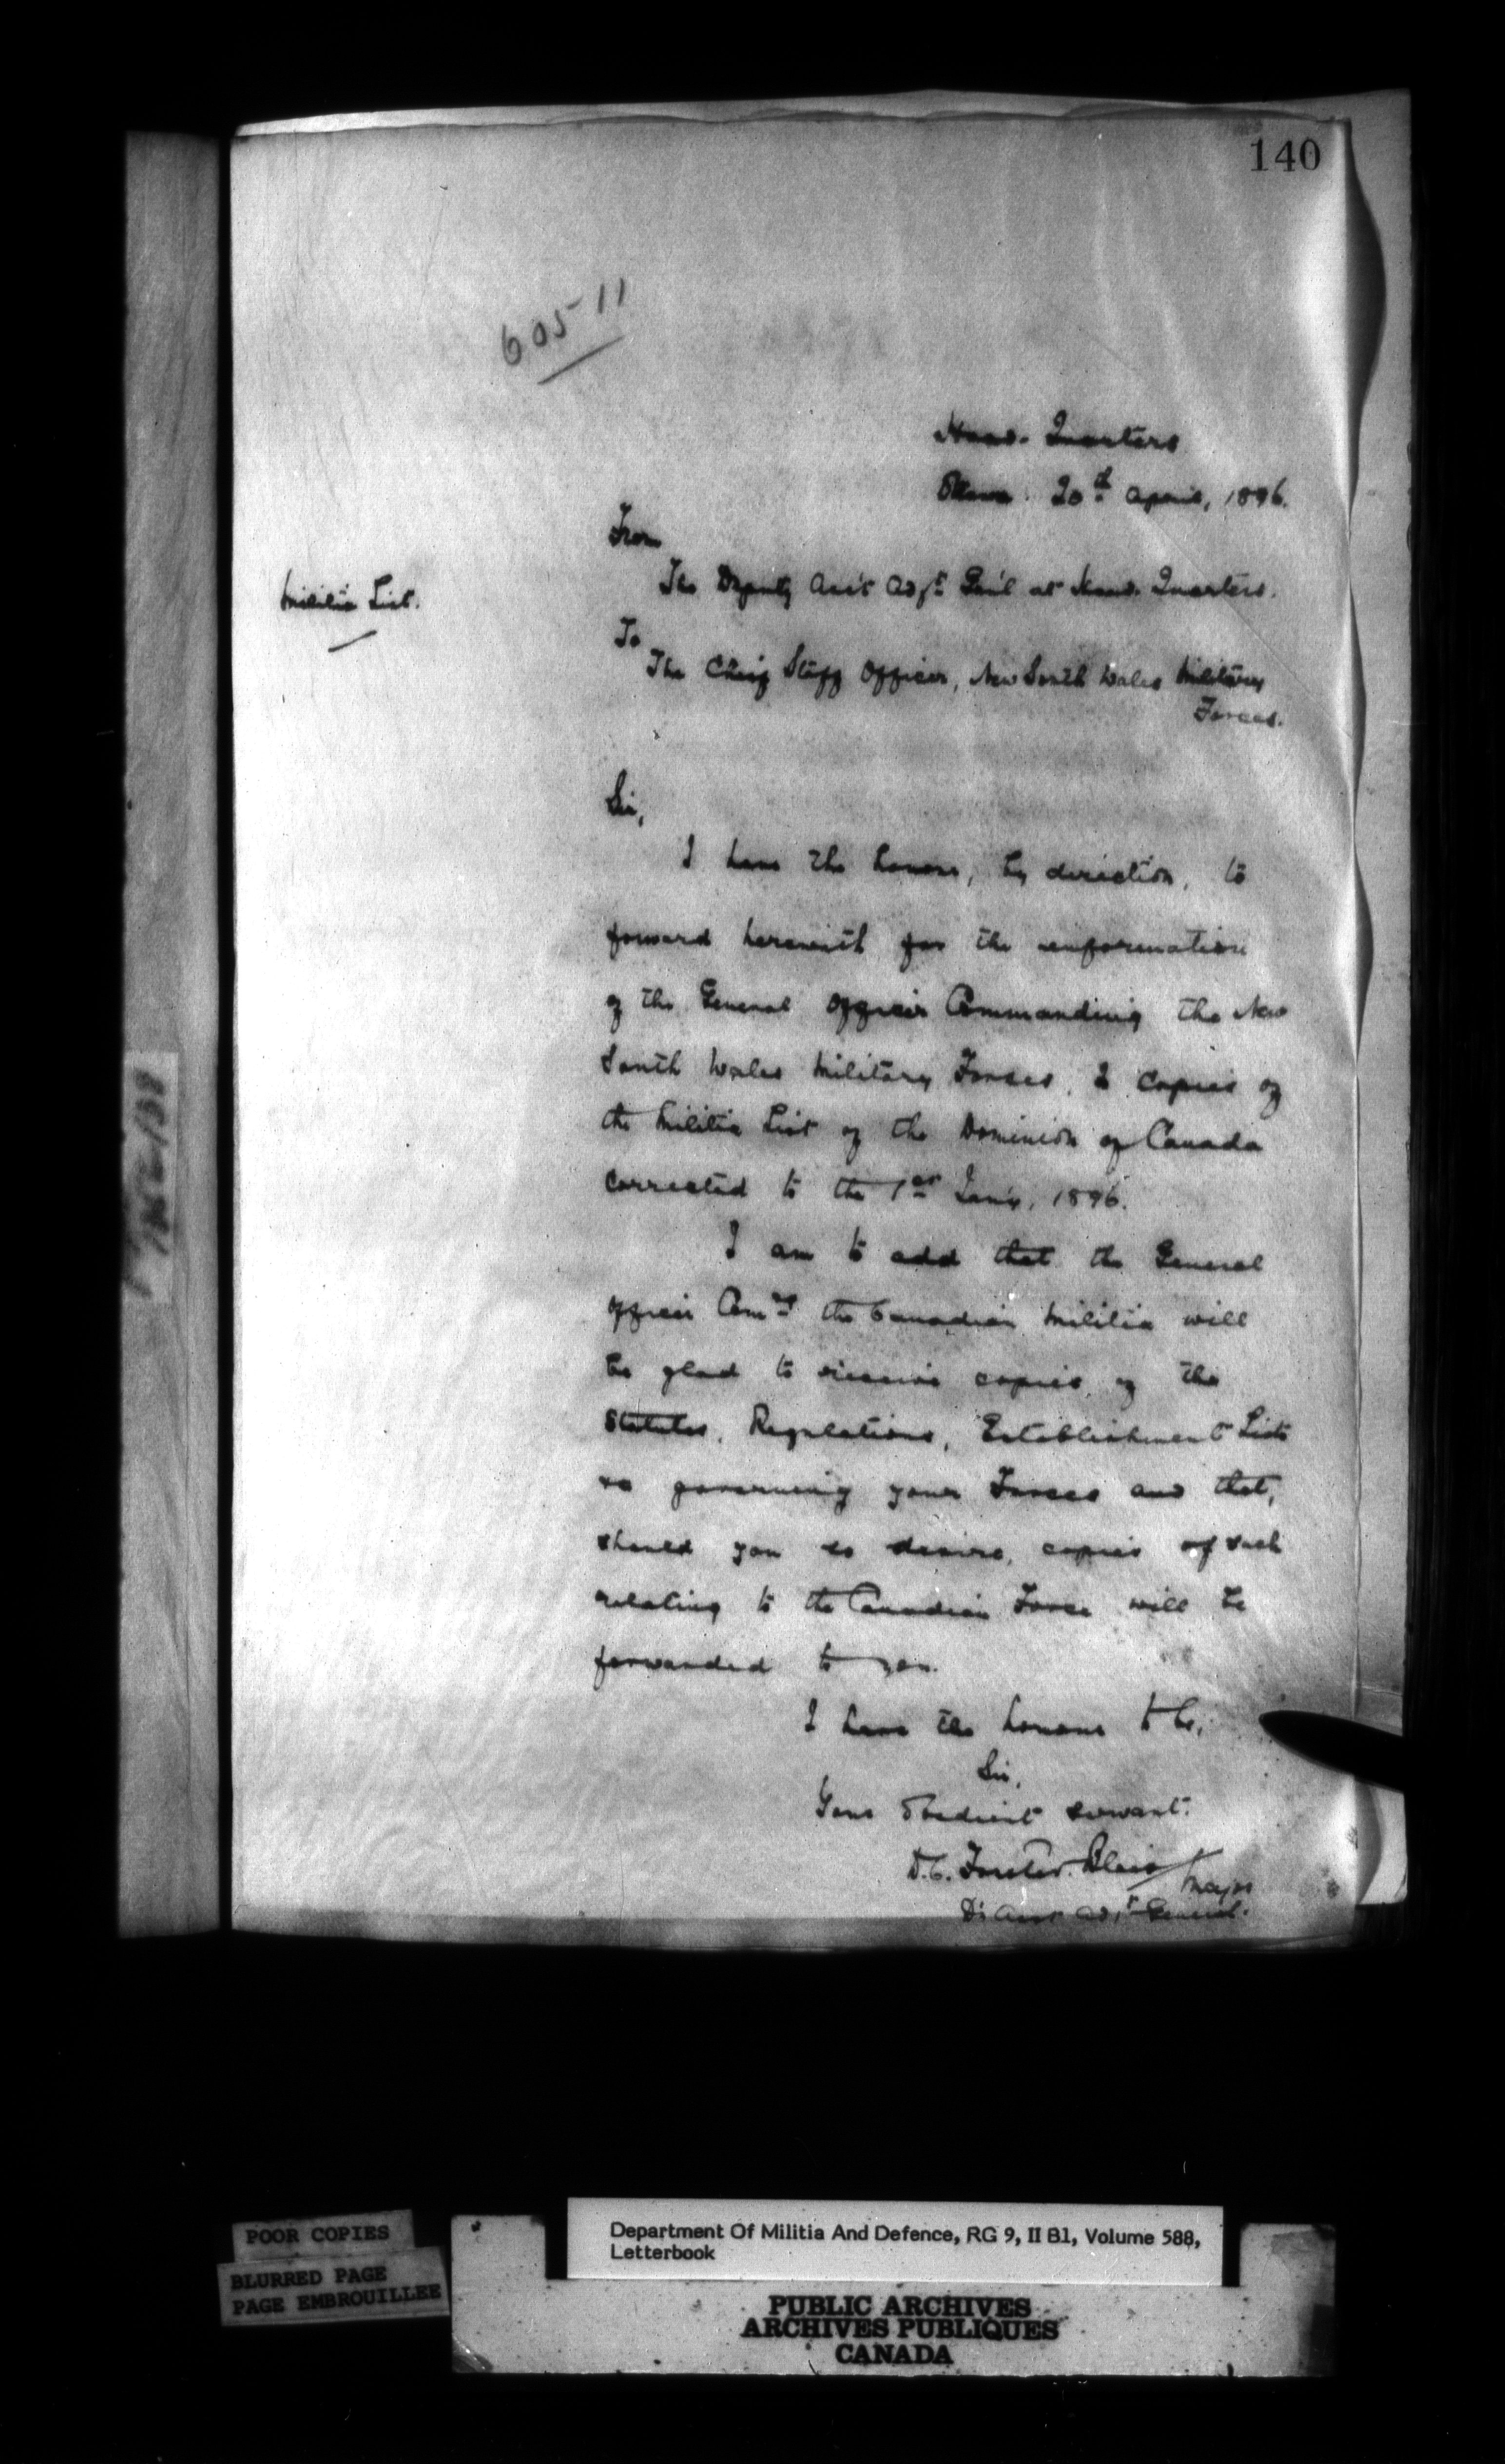 140
605-11
Head-Quarters
Ottawa 20th April, 1896.
From
The Deputy Ass't Adjt Gen'l at Head-Quarters.
Militia List.
To
The Chief Staff Officer, New South Wales Military
Forces.
Sir,
I have the honour, by direction, to
forward herewith for the information
of the General Officer Commanding the New
South Wales Military Forces, 2 copies of
the Militia List of the Dominion of Canada
corrected to the 1st Jany, 1896.
I am to add that the General
Officer Comdg the Canadian Militia will
be glad to receive copies of the
Statutes, Regulations, Establishment Lists
governing your Forces and that,
should you so desire, copies of such
relating to the Canadian Force will be
forwarded to you.
I have the honour to be,
Sir,
Your Obedient servant.
D.C. Forster Bliss Major
D. Asst Adjt General.
POOR COPIES
BLURRED PAGE
PAGE EMBROUILLEE
Department Of Militia And Defence, RG 9, II B1, Volume 588,
Letterbook
PUBLIC ARCHIVES
ARCHIVES PUBLIQUES
CANADA